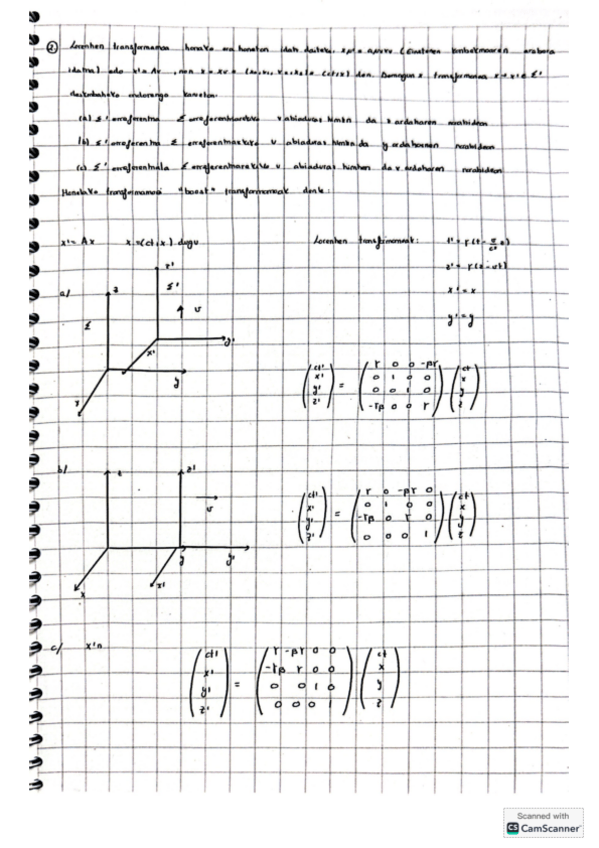 ② Lorentzen transformazioa honako era honetan idatz daiteke,
idatzia) edo x' = Λx, non x =
deskribatzeko ondorengo kasuetan:
(a) Σ' erreferentzia Σ erreferentziarekiko v abiaduraz higitzen da z ardatzaren norabidean
(b) Σ' erreferentzia Σ erreferentziarekiko v abiaduraz higitzen da y ardatzaren norabidean
(c) Σ' erreferentziala Σ erreferentziarekiko v abiaduraz higitzen da x ardatzaren norabidean
Honelako transformazioei "boost" transformazioak deritze:
x' = Λx x = (ct, x) dugu Lorentzen transformazioak: t' = γ(t - v/c² z)
z' = γ(z - vt)
x' = x
y' = y
a/ z z' Σ Σ' v x x' y y'
(ct' x' y' z') = (γ 0 0 -βγ
0 1 0 0
0 0 1 0
-γβ 0 0 γ) (ct x y z)
b/ z z' v x x' y y'
(ct' x' y' z') = (γ 0 -βγ 0
0 1 0 0
-γβ 0 γ 0
0 0 0 1) (ct x y z)
c/ x'n
(ct' x' y' z') = (γ -βγ 0 0
-γβ γ 0 0
0 0 1 0
0 0 0 1) (ct x y z)
Scanned with
CS CamScanner